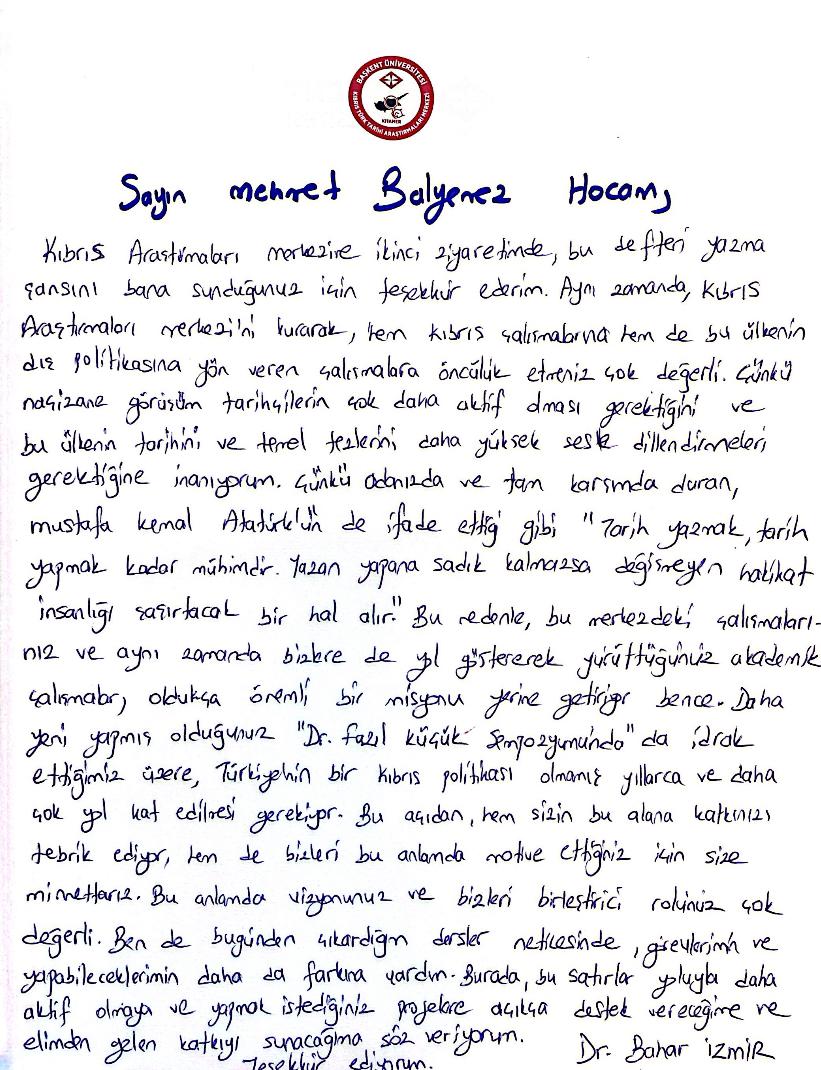 BAŞKENT ÜNİVERSİTESİ
KITAMER
KIBRIS TÜRK TARİHİ ARAŞTIRMALARI MERKEZİ
Sayın Mehmet Balyemez Hocam,
Kıbrıs Araştırmaları merkezine ikinci ziyaretimde, bu defteri yazma
şansını bana sunduğunuz için teşekkür ederim. Aynı zamanda, Kıbrıs
Araştırmaları merkezi'ni kurarak, hem kıbrıs çalışmalarına hem de bu ülkenin
dış politikasına yön veren çalışmalara öncülük etmeniz çok değerli. Çünkü
naçizane görüşüm tarihçilerin çok daha aktif olması gerektiğini ve
bu ülkenin tarihini ve temel tezlerini daha yüksek sesle dillendirmeleri
gerektiğine inanıyorum. Çünkü odanızda ve tam karşımda duran,
mustafa kemal Atatürk'ün de ifade ettiği gibi "Tarih yazmak, tarih
yapmak kadar mühimdir. Yazan yapana sadık kalmazsa değişmeyen hakikat
insanlığı şaşırtacak bir hal alır." Bu nedenle, bu merkezdeki çalışmaları-
nız ve aynı zamanda bizlere de yol göstererek yürüttüğünüz akademik
çalışmalar, oldukça önemli bir misyonu yerine getiriyor bence. Daha
yeni yapmış olduğunuz "Dr. Fazıl Küçük Sempozyumunda" da idrak
ettiğimiz üzere, Türkiye'nin bir kıbrıs politikası olmamış yıllarca ve daha
çok yol kat edilmesi gerekiyor. Bu açıdan, hem sizin bu alana katkınızı
tebrik ediyor, hem de bizleri bu anlamda motive ettiğiniz için size
minnettarız. Bu anlamda vizyonunuz ve bizleri birleştirici rolünüz çok
değerli. Ben de bugünden çıkardığım dersler neticesinde, görevlerimin ve
yapabileceklerimin daha da farkına vardım. Burada, bu satırlar yoluyla daha
aktif olmaya ve yapmak istediğiniz projelere açıkça destek vereceğime ve
elimden gelen katkıyı sunacağıma söz veriyorum.
Teşekkür ediyorum.
Dr. Bahar İZMİR